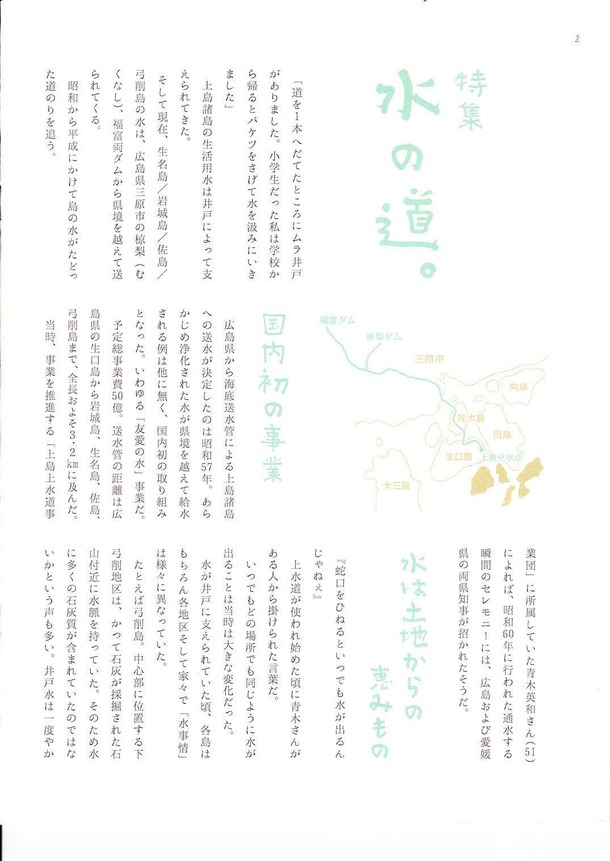 2
特集
水の道。
「道を1本へだてたところにムラ井戸
がありました。小学生だった私は学校か
ら帰るとバケツをさげて水を汲みにいき
ました」
上島諸島の生活用水は井戸によって支
えられてきた。
そして現在、生名島／岩城島／佐島／
弓削島の水は、広島県三原市の椋梨（む
くなし）、福富両ダムから県境を越えて送
られてくる。
昭和から平成にかけて島の水がたどっ
た道のりを追う。
福富ダム
椋梨ダム
三原市
向島
佐木島
因島
生口島
上島分岐点
大三島
国内初の事業
広島県から海底送水管による上島諸島
への送水が決定したのは昭和57年。あら
かじめ浄化された水が県境を越えて給水
される例は他に無く、国内初の取り組み
となった。いわゆる「友愛の水」事業だ。
予定総事業費50億。送水管の距離は広
島県の生口島から岩城島、生名島、佐島、
弓削島まで、全長およそ3・2kmに及んだ。
当時、事業を推進する「上島上水道事
業団」に所属していた青木英和さん（51）
によれば、昭和60年に行われた通水する
瞬間のセレモニーには、広島および愛媛
県の両県知事が招かれたそうだ。
水は土地からの
恵みもの
『蛇口をひねるといつでも水が出るん
じゃねぇ』
上水道が使われ始めた頃に青木さんが
ある人から掛けられた言葉だ。
いつでもどの場所でも同じように水が
出ることは当時は大きな変化だった。
水が井戸に支えられていた頃、各島は
もちろん各地区そして家々で「水事情」
は様々に異なっていた。
たとえば弓削島。中心部に位置する下
弓削地区は、かつて石灰が採掘された石
山付近に水脈を持っていた。そのため水
に多くの石灰質が含まれていたのではな
いかという声も多い。井戸水は一度やか